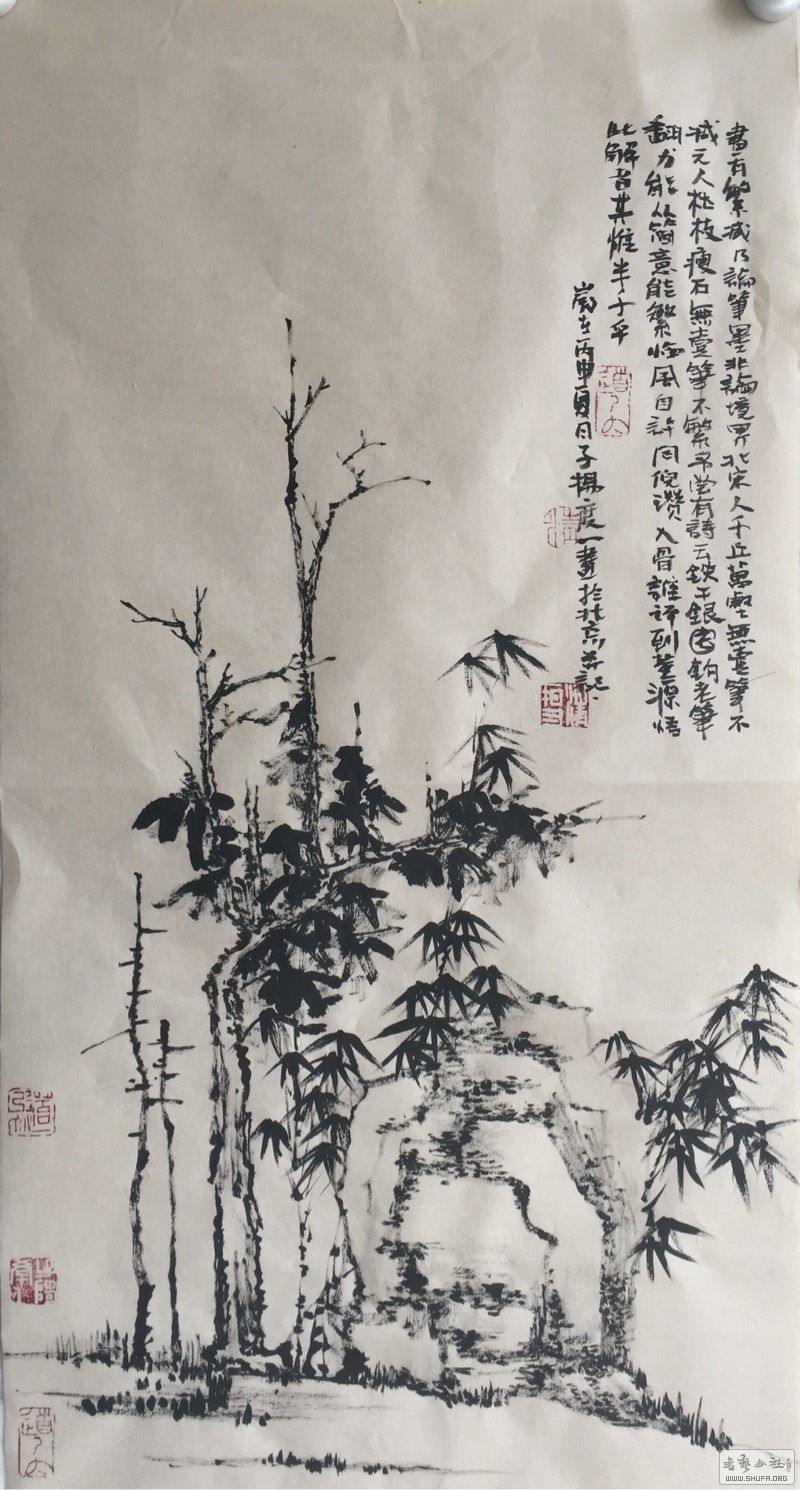 畫有繁减乃論筆墨非論境界北宋人千丘萬壑無壹筆不
减元人枯枝瘦石無壹筆不繁予嘗有詩云鉄干銀鈎老筆
翻力能从簡意能繁臨風自許同倪瓚入骨誰評到董源悟
此解者其惟半千乎
歲在丙申夏月子楊度一畫於北京并記
書藝公社
WWW.SHUFA.ORG